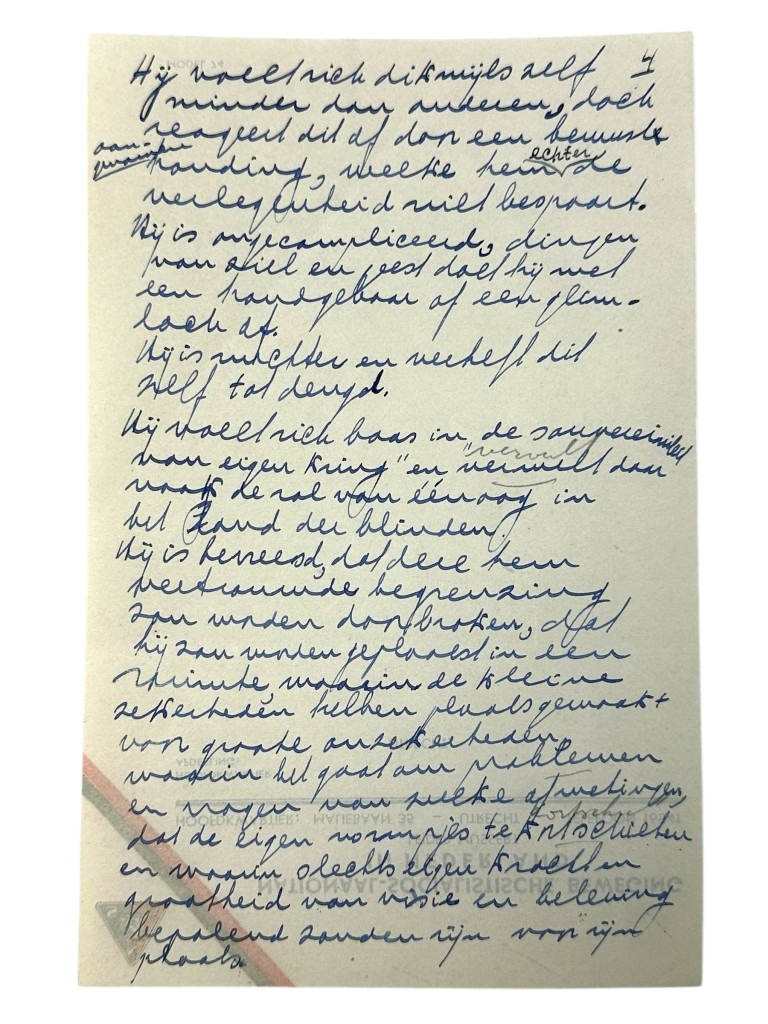 4
Hij voelt zich dikwijls zelf
minder dan anderen, doch
reageert dit af door een bewuste
aan-
genomen
houding, welke hem echter de
verlegenheid niet bespaart.
Hij is ongecompliceerd, dingen
van ziel en geest doet hij met
een handgebaar of een glim-
lach af.
Hij is nuchter en verheft dit
zelf tot deugd.
Hij voelt zich baas in „de souvereiniteit
van eigen kring" en vervult daar
vervult
vaak de rol van éénoog in
het land der blinden.
Hij is bevreesd, dat deze hem
vertrouwde begrenzing
zou worden doorbroken, dat
hij zou worden geplaatst in een
ruimte, waarin de kleine
zekerheden hebben plaatsgemaakt
voor groote onzekerheden,
waarin het gaat om problemen
en vragen van zulke afmetingen,
dat de eigen vormpjes te kort schieten
en waarin slechts eigen krachten
grootheid van visie en beleving
bepalend zouden zijn voor zijn
plaats.
MODEL 74
AFDELING:
HOOFDKWARTIER: MALIEBAAN 35 — UTRECHT
IN NEDERLAND
NATIONAAL-SOCIALISTISCHE BEWEGING